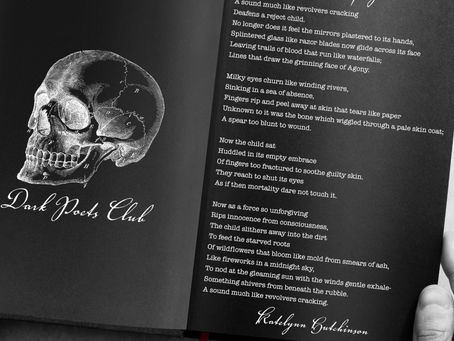 Dark Poets Club
A sound much like revolvers cracking
Deafens a reject child.
No longer does it feel the mirrors plastered to its hands,
Splintered glass like razor blades now glide across its face
Leaving trails of blood that run like waterfalls;
Lines that draw the grinning face of Agony.
Milky eyes churn like winding rivers,
Sinking in a sea of absence,
Fingers rip and peel away at skin that tears like paper
Unknown to it was the bone which wiggled through a pale skin coat;
A spear too blunt to wound.
Now the child sat
Huddled in its empty embrace
Of fingers too fractured to soothe guilty skin.
They reach to shut its eyes
As if then mortality dare not touch it.
Now as a force so unforgiving
Rips innocence from consciousness,
The child slithers away into the dirt
To feed the starved roots
Of wildflowers that bloom like mold from smears of ash,
Like fireworks in a midnight sky,
To nod at the gleaming sun with the winds gentle exhale-
Something shivers from beneath the rubble.
A sound much like revolvers cracking.
Katelynn Hutchinson